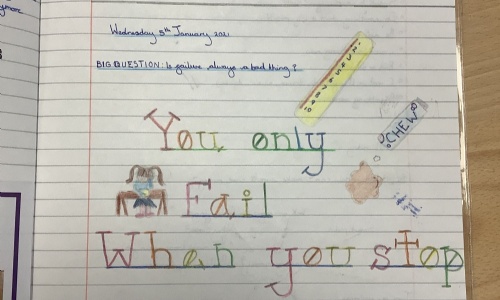 Wednesday 5th January 2021
BIG QUESTION: Is failure always a bad thing?
You only
CHEW
Fail
When you stop